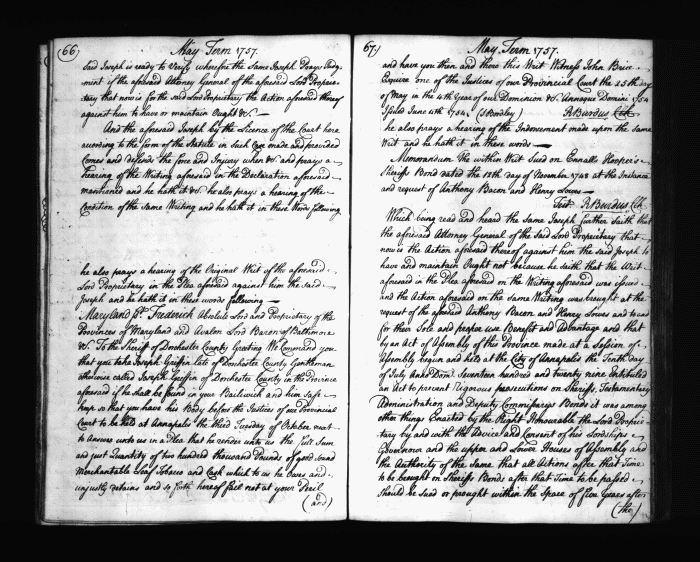 66
May Term 1757.
Said Joseph is ready to Verify wherefore the Same Joseph Prays Judg-
ment if the aforesaid Attorney General of the aforesaid Lord Proprie-
tary that now is for the said Lord Proprietary the Action aforesaid thereof
against him to have or maintain Ought &c. —
And the aforesaid Joseph by the Licence of the Court here
according to the form of the Statute in Such Case made and provided
Comes and defends the force and Injury when &c and prays a
hearing of the Writing aforesaid in the Declaration aforesaid
mentioned and he hath it &c. he also prays a hearing of the
Condition of the Same Writing and he hath it in these Words following
he also prays a hearing of the Original Writ of the aforesaid
Lord Proprietary in the Plea aforesaid against him the said
Joseph and he hath it in these words following —
Maryland Sct. Frederick Absolute Lord and Proprietary of the
Provinces of Maryland and Avalon Lord Baron of Baltimore
&c To the Sheriff of Dorchester County Greeting We Command you
that you take Joseph Griffin late of Dorchester County Gentleman
otherwise called Joseph Griffin of Dorchester County in the Province
aforesaid if he shall be found in your Bailiwick and him safe
keep so that you have his Body before the Justices of our Provincial
Court to be held at Annapolis the third Tuesday of October next
to Answer unto us in a Plea that he render unto us the full Sum
and just Quantity of two hundred thousand Pounds of good sound
Merchantable leaf Tobacco and Cask which to us he Owes and
unjustly detains and so forth hereof fail not at your Peril
(and)
67
May Term 1757.
and have you then and there this Writ Witness John Brice
Esquire one of the Justices of our Provincial Court the 25th day
of May in the 4th Year of our Dominion &c. Annoque Domini 1754
Issued June 11th 1754. (S Bordley) R Burdus Clk
he also prays a hearing of the Indorsement made upon the Same
Writ and he hath it in these words —
Memorandum The within Writ Sued on Ennalls Hooper's
Sheriffs Bond dated the 10th day of November 1748 at the Instance
and request of Anthony Bacon and Henry Lowes —
Test R Burdus Clk
Which being read and heard the Same Joseph further saith that
the aforesaid Attorney General of the Said Lord Proprietary that
now is the Action aforesaid thereof against him the said Joseph to
have and maintain Ought not because he saith that the Writ
aforesaid in the Plea aforesaid on the Writing aforesaid was issued
and the Action aforesaid on the Same Writing was brought at the
request of the aforesaid Anthony Bacon and Henry Lowes and to and
for their Sole and proper use Benefit and Advantage and that
by an Act of Assembly of the Province made at a Session of
Assembly begun and held at the City of Annapolis the Tenth day
of July Anno Domi. Seventeen hundred and twenty nine Entituled
an Act to prevent Rigorous prosecutions on Sheriffs, Testamentary
Administration and Deputy Commissarys Bonds it was among
other things Enacted by the Right Honourable the Lord Proprie-
tary by and with the Advice and Consent of his Lordships
Governour and the upper and Lower Houses of Assembly and
the Authority of the Same that all Actions after that Time
to be brought on Sheriffs Bonds after that Time to be passed
Should be Said or brought within the Space of five Years after
(the)